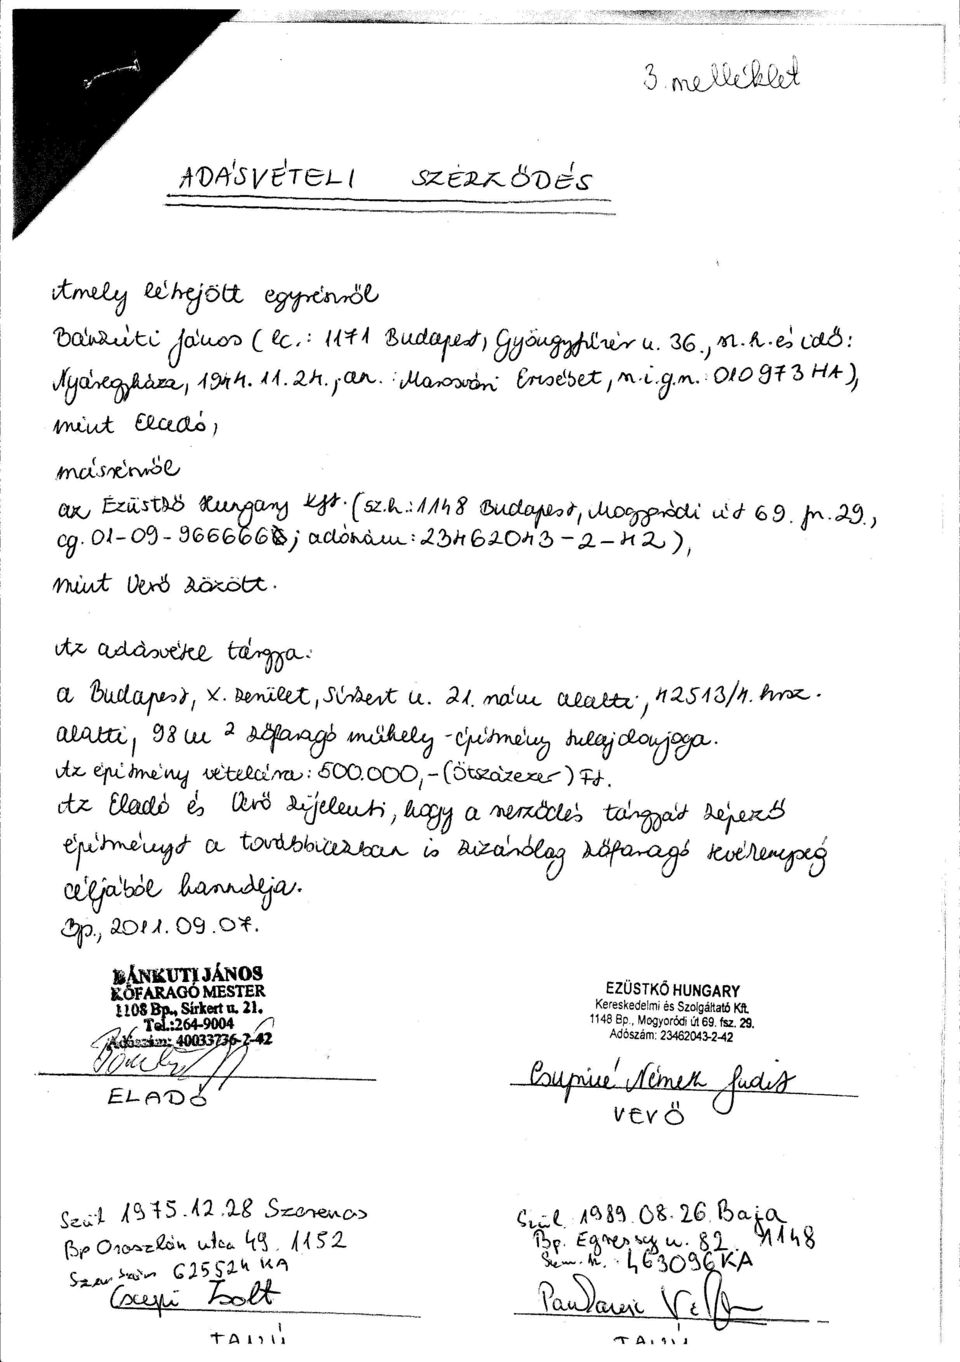 3. melléklet
ADÁSVÉTELI SZERZŐDÉS
Amely létrejött egyrészről
Bánkuti János (lc.: 1171 Budapest, Gyöngyfüzér u. 36., sz.h. és idő:
Nyíregyháza, 1944. 11. 24., an.: Marosvári Erzsébet, sz.i.g.sz.: 010973 HA),
mint Eladó,
másrészről
az Ezüstkő Hungary Kft. (sz.h.: 1148 Budapest, Mogyoródi út 69. fsz. 29.,
cg. 01-09-966666; adószám: 23462043-2-42),
mint Vevő között.
Az adásvétel tárgya:
a Budapest, X. kerület, Sírkert u. 21. szám alatti, 42513/4. hrsz.
alatti, 98 m2 kőfaragó műhely-építmény tulajdonjoga.
Az építmény vételára: 500.000,- (Ötszázezer) Ft.
Az Eladó és Vevő kijelenti, hogy a szerződés tárgyát képező
építményt a továbbiakban is kizárólag kőfaragó tevékenység
céljából használja.
Bp., 2011. 09. 07.
BÁNKUTI JÁNOS
KŐFARAGÓ MESTER
1108 Bp., Sírkert u. 21.
Tel.: 264-9004
Adószám: 40033736-2-42
ELADÓ
EZÜSTKŐ HUNGARY
Kereskedelmi és Szolgáltató Kft.
1148 Bp., Mogyoródi út 69. fsz. 29.
Adószám: 23462043-2-42
Csepiné Németh Judit
VEVŐ
Szül 1975.12.28 Szerencs
Bp Oroszlán utca 49. 1152
625524 KA
Csepi Zsolt
TANÚ
Szül. 1989. 08. 26. Baja
Bp. Egressy u. 82. 1148
Szem. sz.: 463096KA
TANÚ